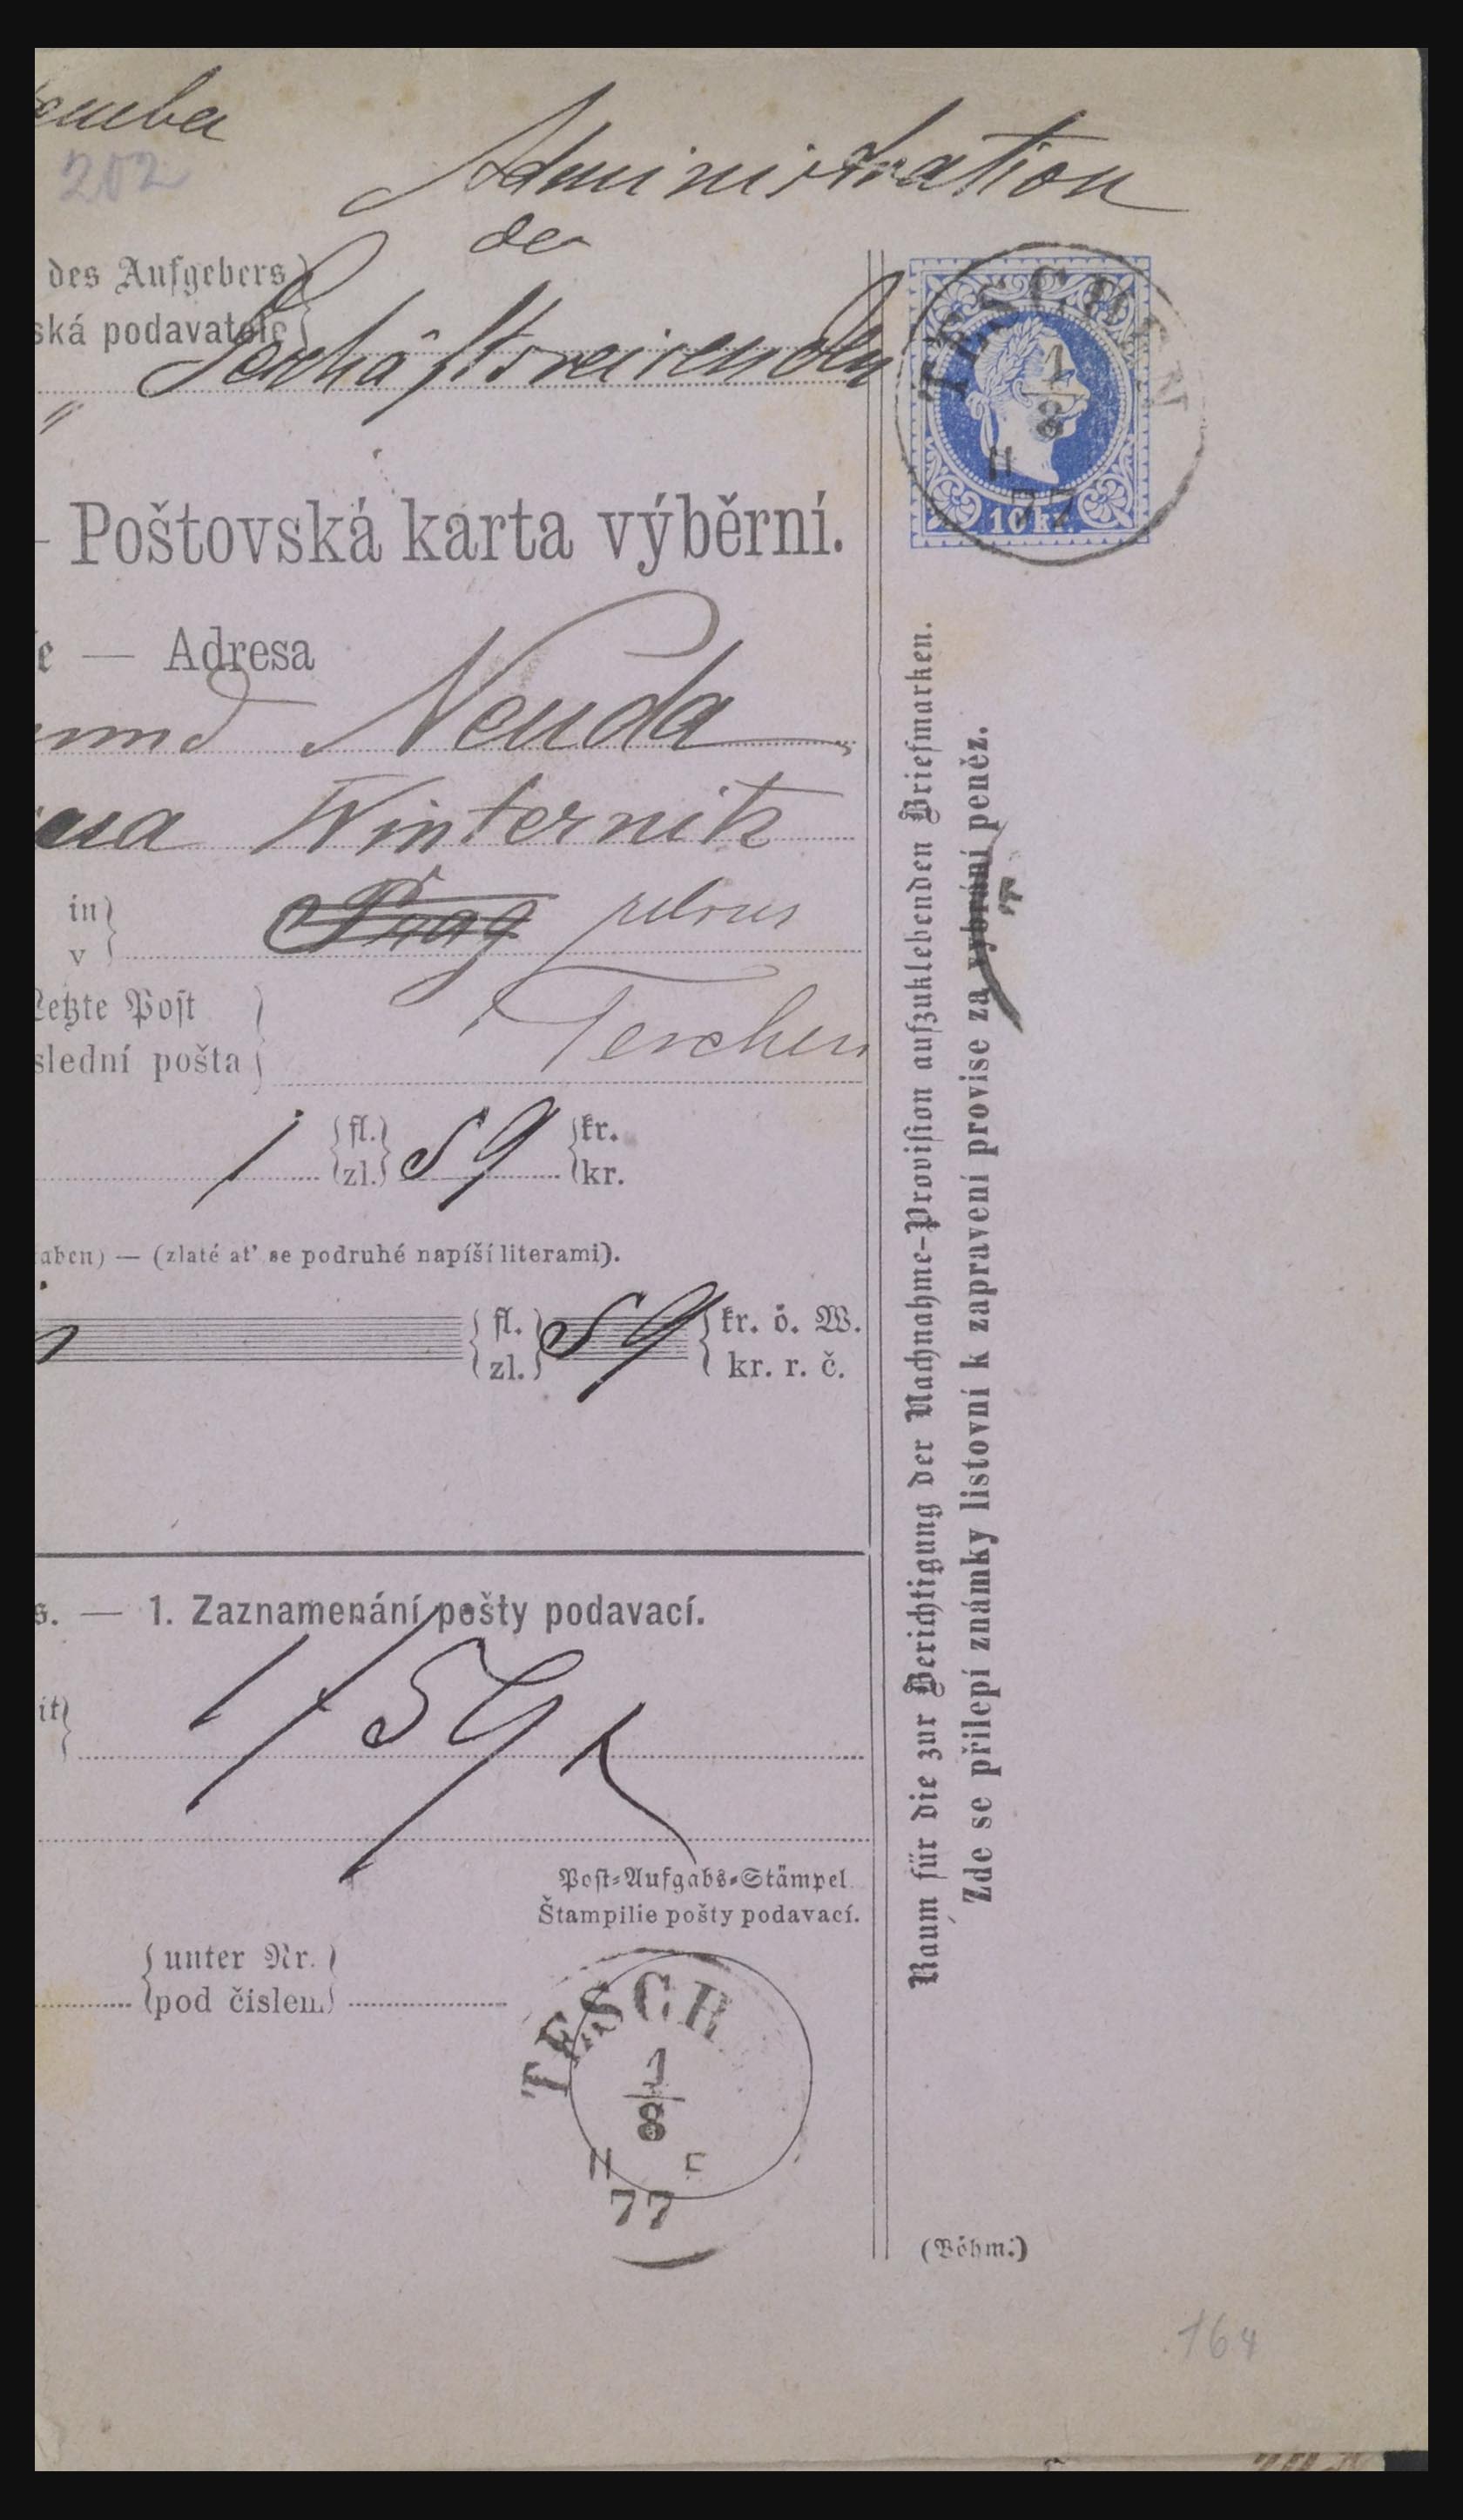 Administration
202
der
des Aufgebers
ská podavatele
Geschäftsreisenden
TESCHEN
1
8
77
10 kr.
- Poštovská karta výběrní.
e — Adresa
Neuda
Winternitz
in
v
Prag
Letzte Post
slední pošta
Teschen
1 fl. 59 kr.
zl. kr.
aben) — (zlaté ať se podruhé napíší literami).
fl. 59 kr. ö. W.
zl. kr. r. č.
s. — 1. Zaznamenání pošty podavací.
it
1/59
Post-Aufgabs-Stämpel.
Štampilie pošty podavací.
unter Nr.
pod číslem
TESCH
1
8
77
Raum für die zur Berichtigung der Nachnahme-Provision aufzuklebenden Briefmarken.
Zde se přilepí známky listovní k zapravení provise za vybrání peněz.
(Böhm.)
164